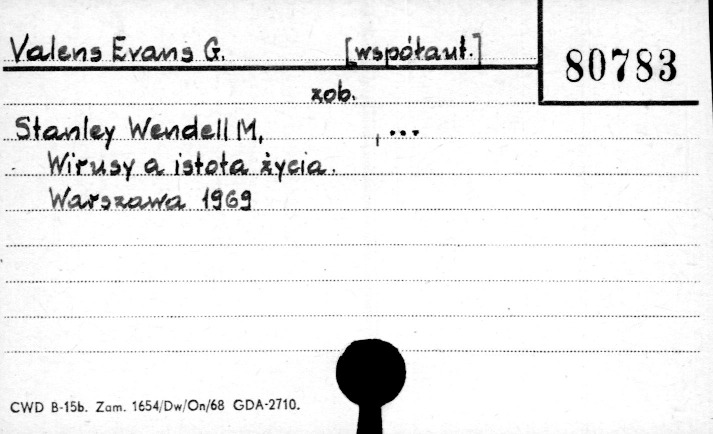 Valens Evans G. [współaut.]
80783
zob.
Stanley Wendell M., , ...
Wirusy a istota życia.
Warszawa 1969
CWD B-15b. Zam. 1654/Dw/On/68 GDA-2710.